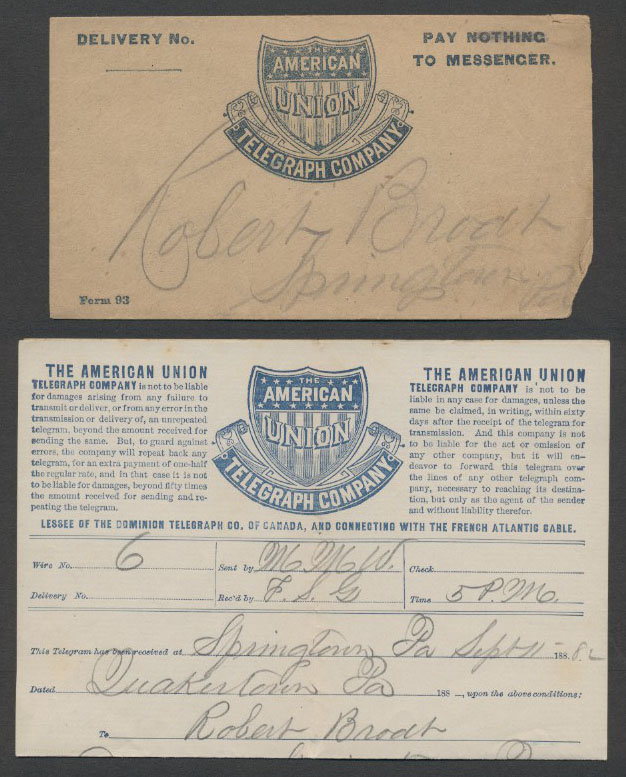 DELIVERY No.
PAY NOTHING
TO MESSENGER.
THE
AMERICAN
UNION
TELEGRAPH COMPANY
Robert Brodt
Springtown Pa
Form 93
THE AMERICAN UNION
TELEGRAPH COMPANY is not to be liable
for damages arising from any failure to
transmit or deliver, or from any error in the
transmission or delivery of, an unrepeated
telegram, beyond the amount received for
sending the same. But, to guard against
errors, the company will repeat back any
telegram, for an extra payment of one-half
the regular rate, and in that case it is not
to be liable for damages, beyond fifty times
the amount received for sending and re-
peating the telegram.
THE
AMERICAN
UNION
TELEGRAPH COMPANY
THE AMERICAN UNION
TELEGRAPH COMPANY is not to be
liable in any case for damages, unless the
same be claimed, in writing, within sixty
days after the receipt of the telegram for
transmission. And this company is not
to be liable for the act or omission of
any other company, but it will en-
deavor to forward this telegram over
the lines of any other telegraph com-
pany, necessary to reaching its destina-
tion, but only as the agent of the sender
and without liability therefor.
LESSEE OF THE DOMINION TELEGRAPH CO. OF CANADA, AND CONNECTING WITH THE FRENCH ATLANTIC CABLE.
Wire No. 6 Sent by M. M. W. Check
Delivery No. Rec'd by F. S. G Time 5 P.M.
This Telegram has been received at Springtown Pa Sept 11 188 82
Dated Quakertown Pa 188 , upon the above conditions:
To Robert Brodt